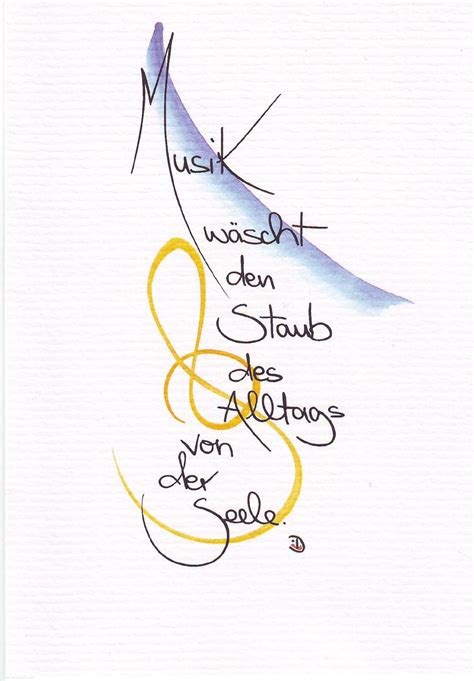 Musik
wäscht
den
Staub
des
Alltags
von
der
Seele.